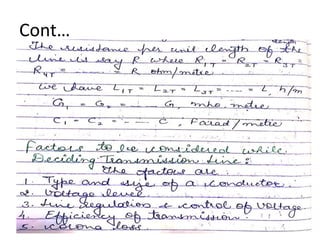 Cont…
length
The resistance per unit length of the
line is say R where R1T = R2T = R3T =
R4T = ........ = R ohm/metre
We have L1T = L2T = L3T = .... = L, h/m
G1 = G2 = ..... G, mho metre
C1 = C2 = ..... C, Farad/metre
Factors to be considered while
Deciding Transmission line:
The factors are
1. Type and size of a conductor.
2. Voltage level
3. Line regulation & control of voltage
4. Efficiency of transmission
5. Corona loss.